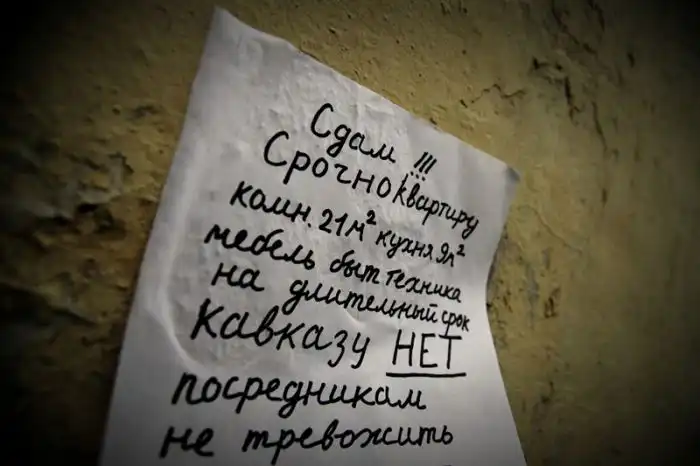 Сдам !!!
Срочно квартиру
комн. 21м² кухня 9м²
мебель быт техника
на длительный срок
Кавказу НЕТ
посредникам
не тревожить